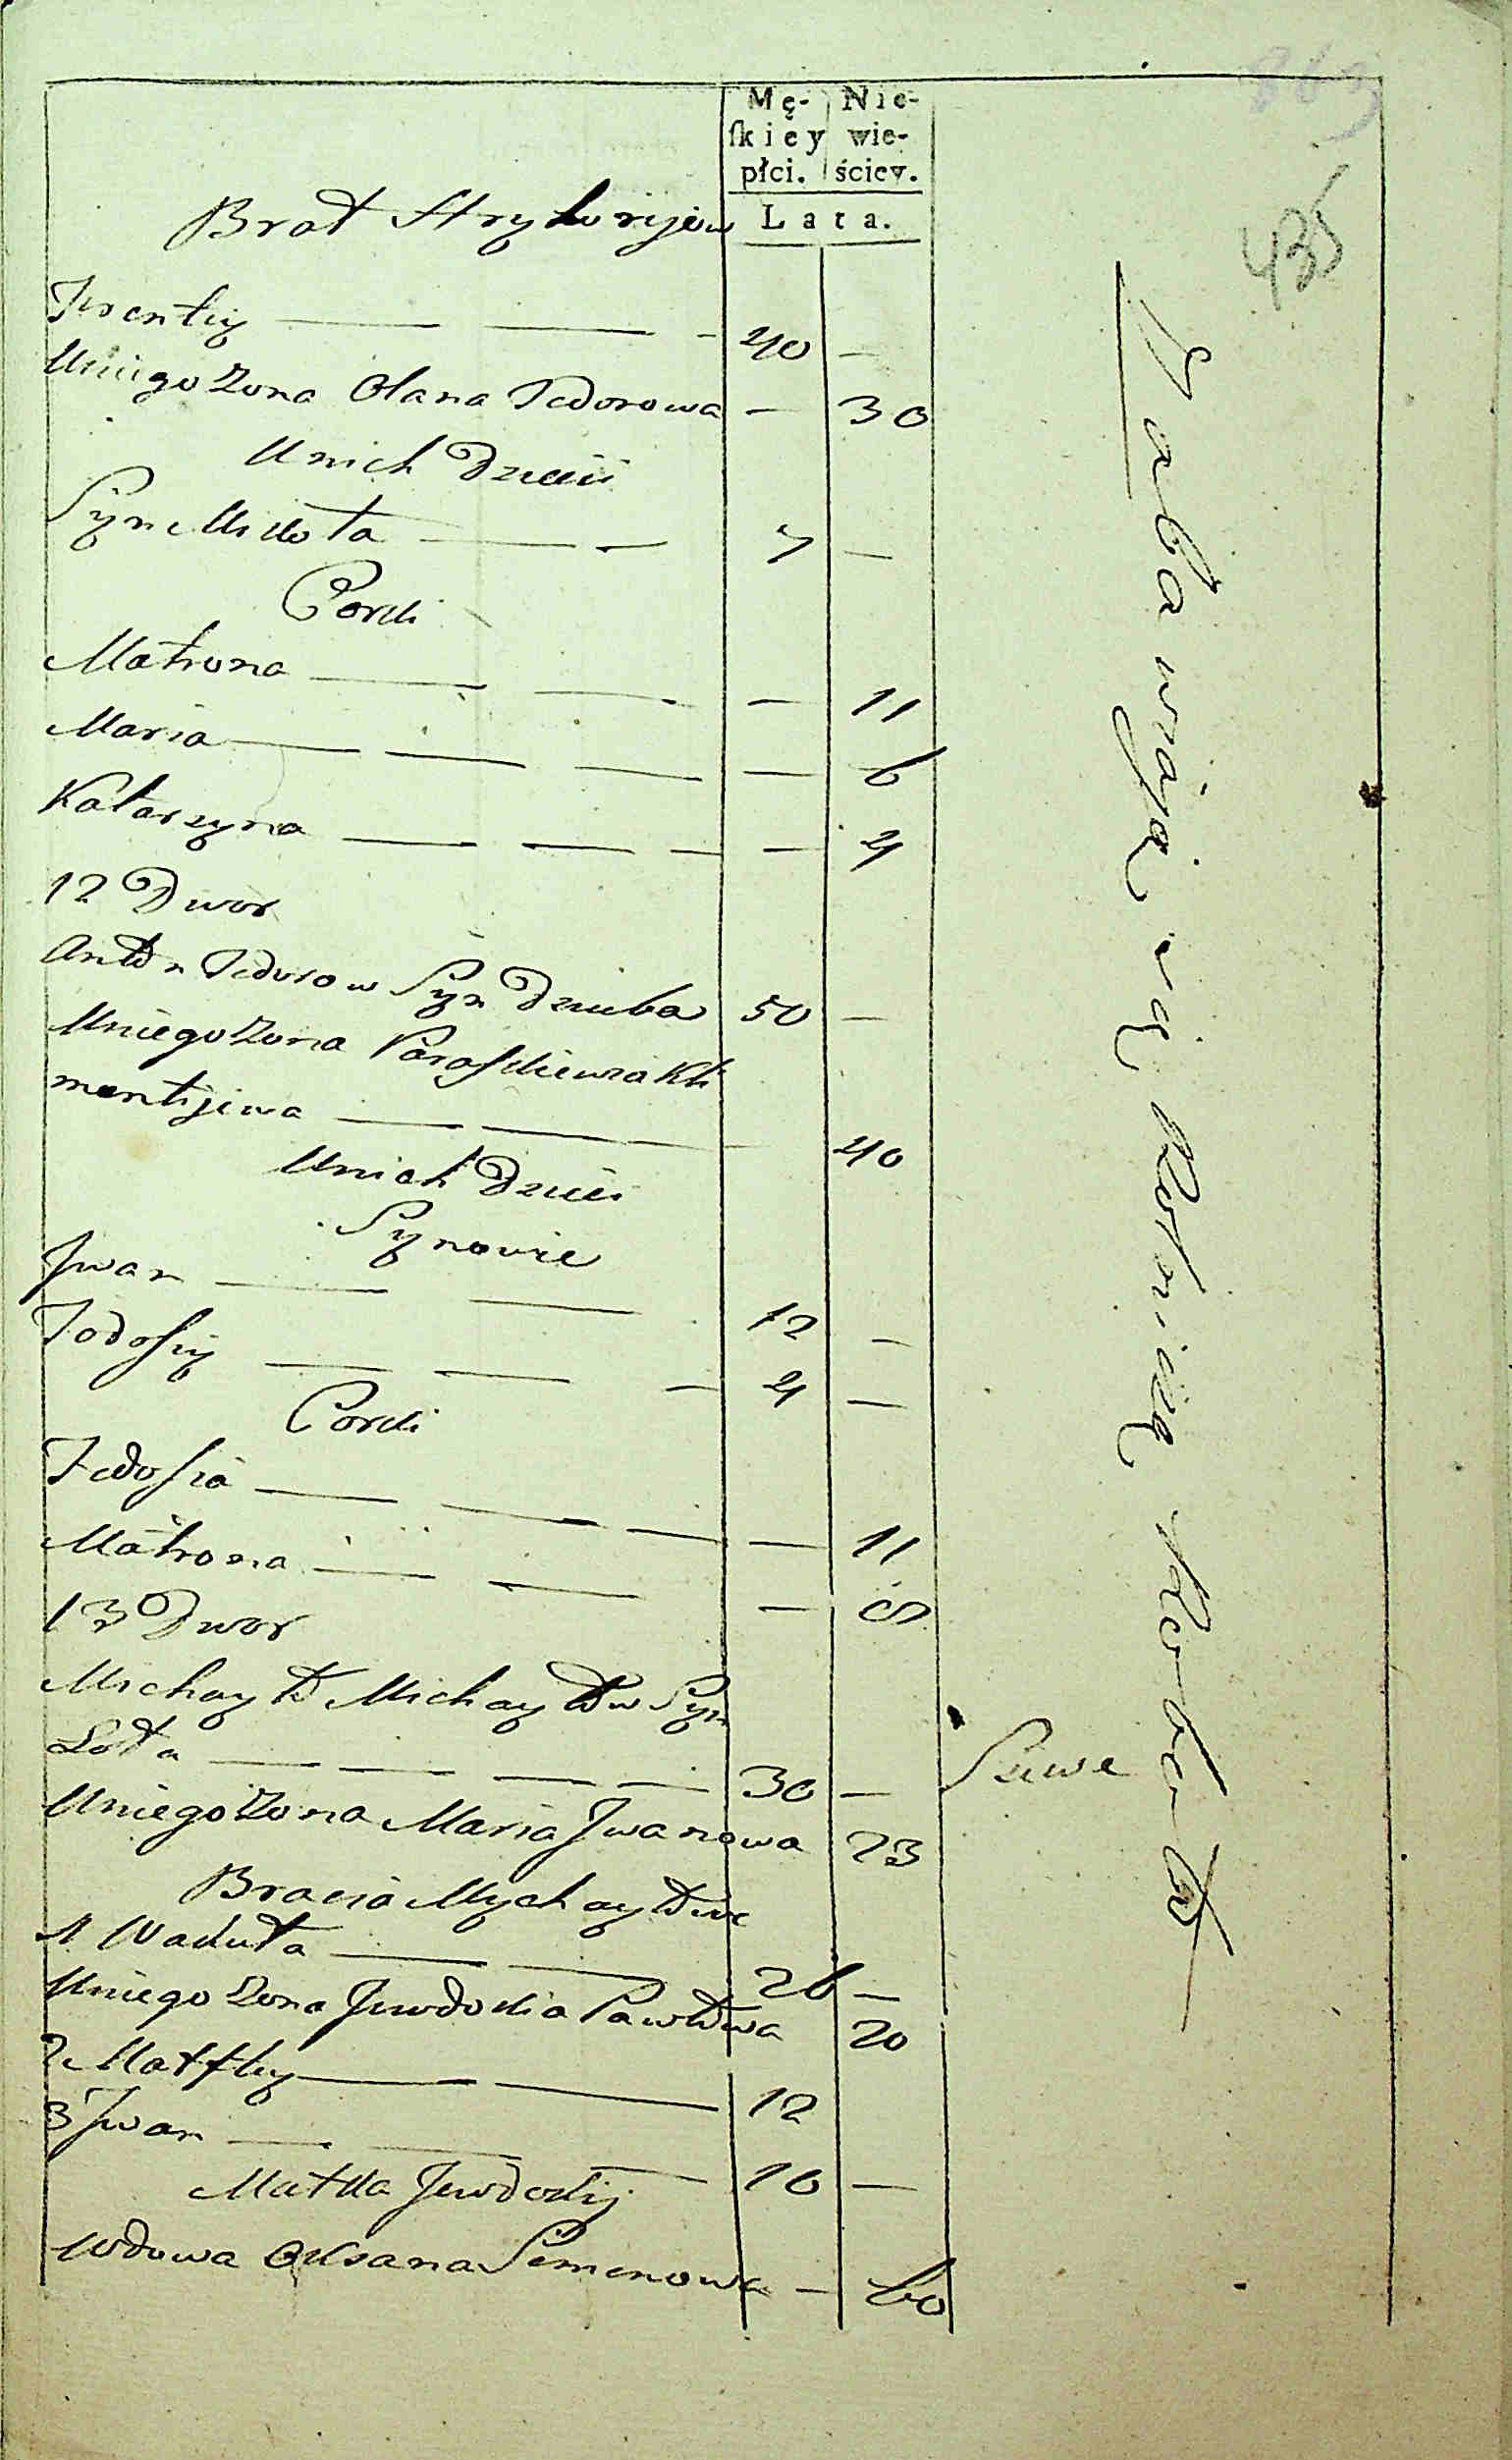 863
435
Mę- Nie-
ſkiey wie-
płci. ściey.
Lata.
Brat Hryhorijew
Jwentiy — — - 40 —
Uniego Zona Olana Fedorowa — 30
Unich Dzieci
Syn Mikita — — 7 —
Corki
Matrona — — — 11
Maria — — — — 6
Katarzyna — — — — 4
12 Dwor
Anton Fedorow Syn Dziuba 50 —
Uniego Zona Paraskiewia Kli
mentijewa — — 40
Unich Dzieci
Synowie
Jwan — — 12 —
Fodosiy — — — 4 —
Corki
Fedosia — — — — 11
Matrona — — — 8
13 Dwor
Michayło Michayłow Syn
Łota — — — — 30 — Siiwe
Uniego Zona Maria Jwanowa 23
Bracia Mychayłowe
1 Wakuła — — 26 —
Uniego Zona Jewdokia Pawłowa 20
2 Matfiey — — 12
3 Jwan — — — 10 —
Matka Jewdokij
Wdowa Oksana Semenowa — 60
Zabawiaią się Rolniczą Robotą